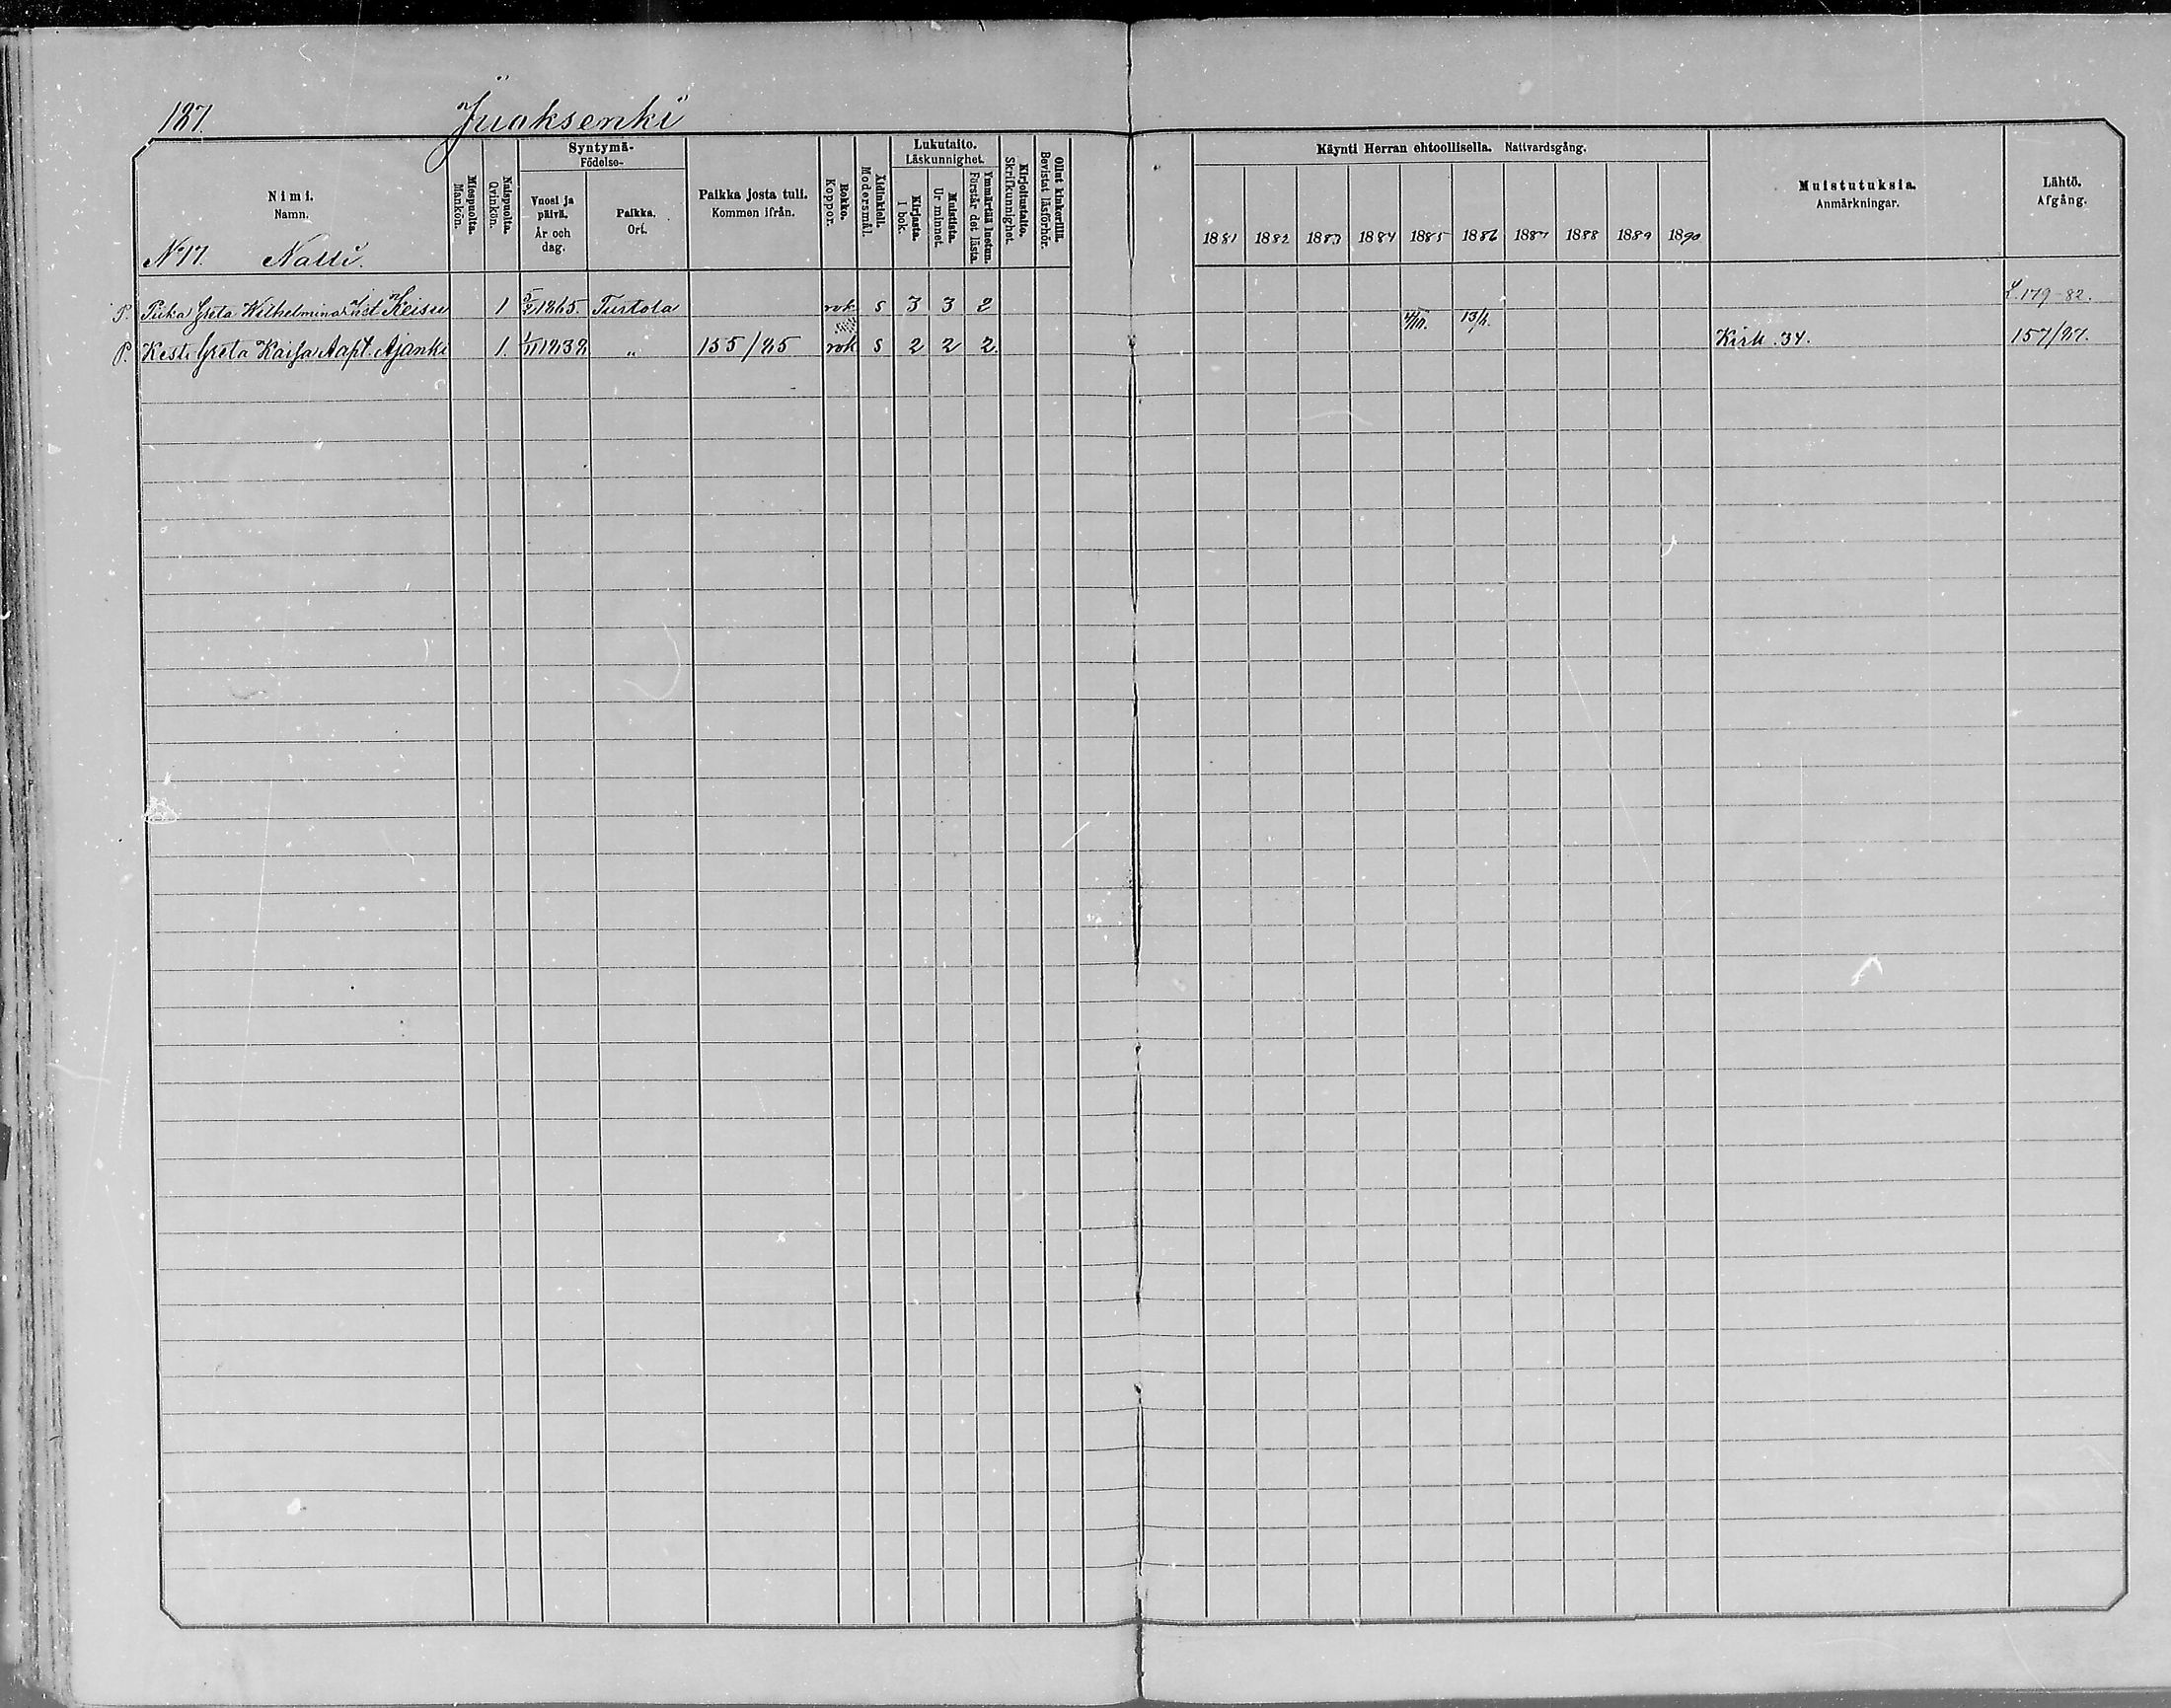 187. Juoksenki
Syntymä-
Födelse-
Lukutaito.
Läskunnighet.
Käynti Herran ehtoollisella. Nattvardsgång.
Nimi.
Namn.
Miespuolia.
Mankön.
Naispuolia.
Qvinkön.
Vuosi ja päivä.
År och dag.
Paikka.
Ort.
Paikka josta tuli.
Kommen ifrån.
Rokko.
Koppor.
Äidinkieli.
Modersmål.
Kirjasta.
I bok.
Muistista.
Ur minnet.
Ymmärtää luetun.
Förstår det lästa.
Kirjoitustaito.
Skrifkunnighet.
Ollut kinkerillä.
Bevistat läsförhör.
1881 1882 1883 1884 1885 1886 1887 1888 1889 1890
Muistutuksia.
Anmärkningar.
Lähtö.
Afgång.
N:17. Natti.
P. Piika Greta Wilhelmina Keisu 1 5/2 1865. Turtola rok s 3 3 2 L. 179-82.
13/
P. Kest. Greta Kaisa Aapt. Ajanki 1. 1/11 1838 „ 155/85 rok s 2 2 2. Kirk. 34. 157/87.